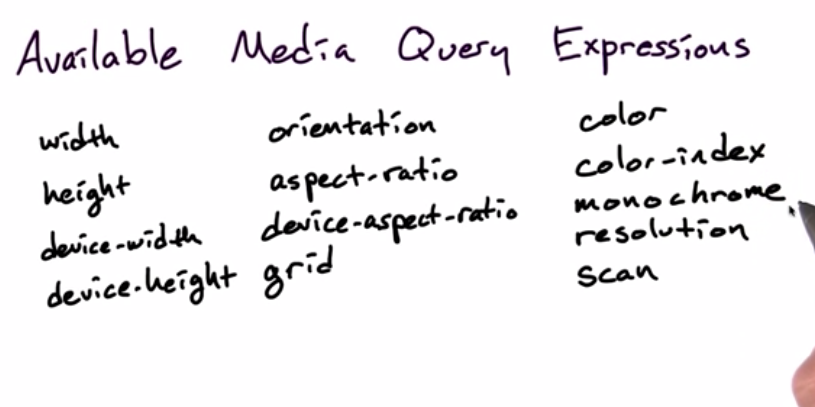 Available Media Query Expressions
width
height
device-width
device-height
orientation
aspect-ratio
device-aspect-ratio
grid
color
color-index
monochrome
resolution
scan